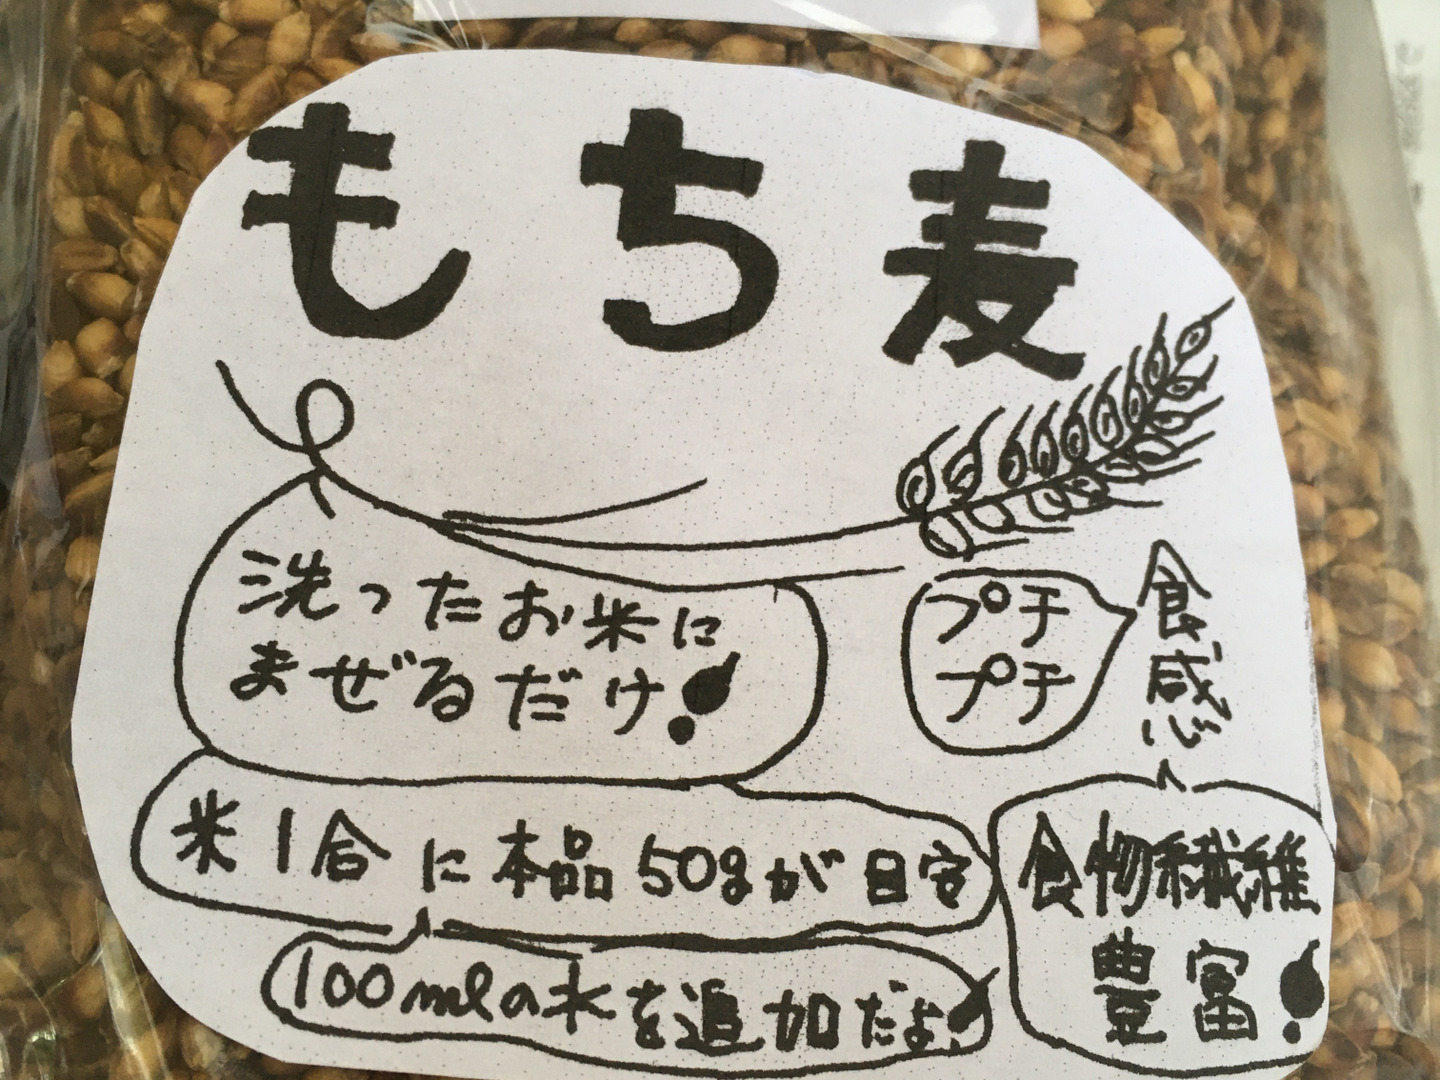 もち麦
洗ったお米に
まぜるだけ!
プチ
プチ
食感
米1合に本品50gが目安
100mlの水を追加だよ!
食物繊維
豊富!